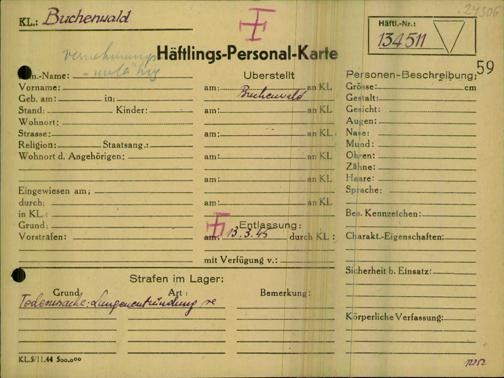 KL.: Buchenwald
24306
Häftl.-Nr.:
134511
vernehmungs-
unfähig
Häftlings-Personal-Karte
59
Fam.-Name:
Vorname:
Geb. am: in:
Stand: Kinder:
Wohnort:
Strasse:
Religion: Staatsang.:
Wohnort d. Angehörigen:
Eingewiesen am:
durch:
in KL.:
Grund:
Vorstrafen:
Überstellt
am: Buchenwald an KL
am: an KL
am: an KL
am: an KL
am: an KL
am: an KL
Entlassung:
am: 13.3.45 durch KL.:
mit Verfügung v.:
Personen-Beschreibung:
Grösse: cm
Gestalt:
Gesicht:
Augen:
Nase:
Mund:
Ohren:
Zähne:
Haare:
Sprache:
Bes. Kennzeichen:
Charakt.-Eigenschaften:
Sicherheit b. Einsatz:
Körperliche Verfassung:
Strafen im Lager:
Grund: Art: Bemerkung:
Todesursache: Lungenentzündung re
KL.5/11.44 500.000